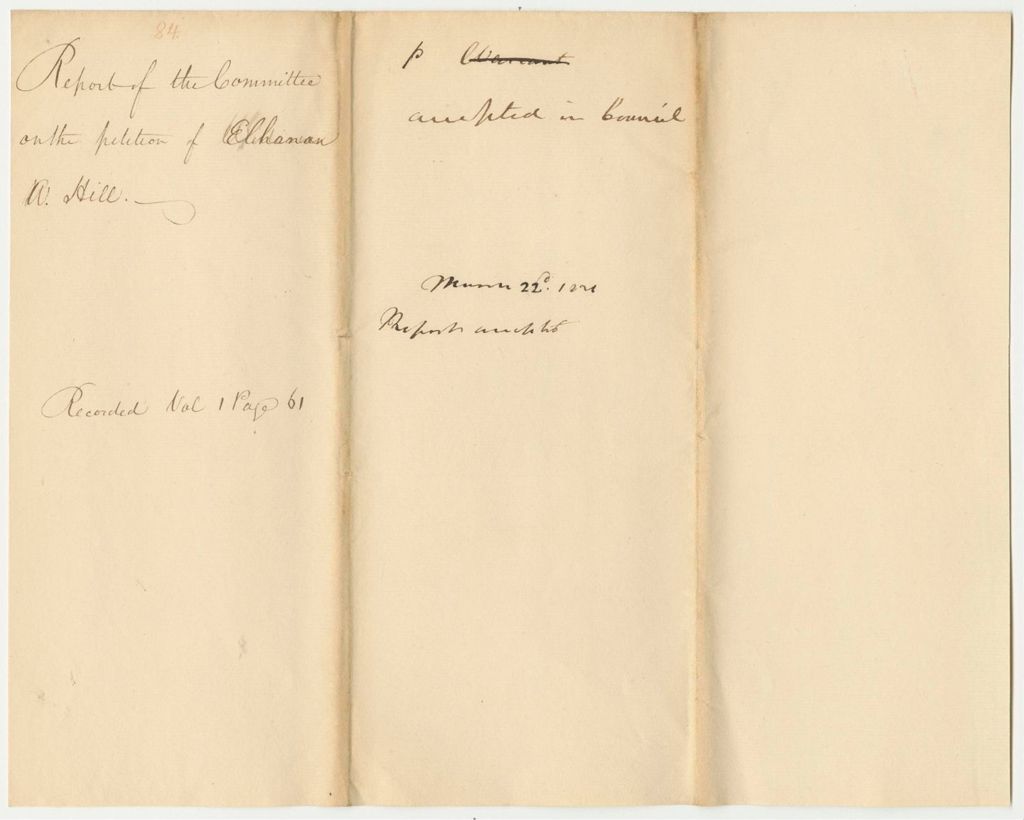 84.
Report of the Committee
on the petition of Elhanan
W. Hill.
Recorded Vol 1 Page 61
p Warrant
accepted in Council
March 22d. 1821
Report accepted